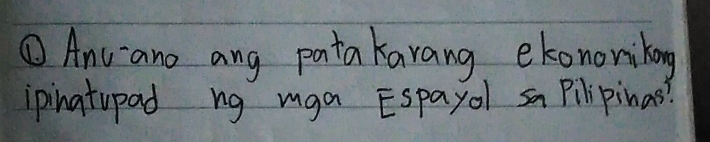 ① Anu-ano ang patakarang ekonomikong
ipinatupad ng mga Espayol sa Pilipinas?